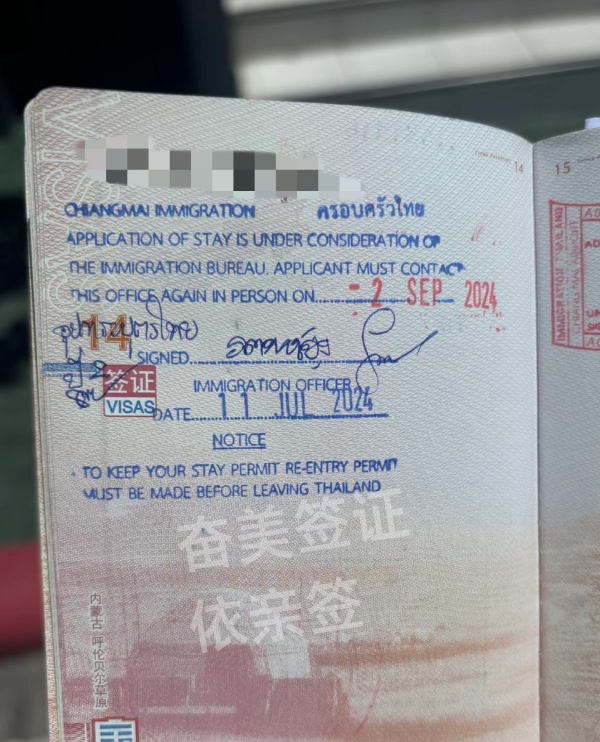 14
15
CHIANGMAI IMMIGRATION ครอบครัวไทย
APPLICATION OF STAY IS UNDER CONSIDERATION OF
THE IMMIGRATION BUREAU, APPLICANT MUST CONTACT
THIS OFFICE AGAIN IN PERSON ON - 2 SEP 2024
อุปการะบุตรไทย
14
ปี 2
SIGNED
签证
VISAS
IMMIGRATION OFFICER
DATE 11 JUL 2024
NOTICE
TO KEEP YOUR STAY PERMIT RE-ENTRY PERMIT
MUST BE MADE BEFORE LEAVING THAILAND
奋美签证
依亲签
内蒙古 呼伦贝尔草原
IMMIGRATION THAILAND